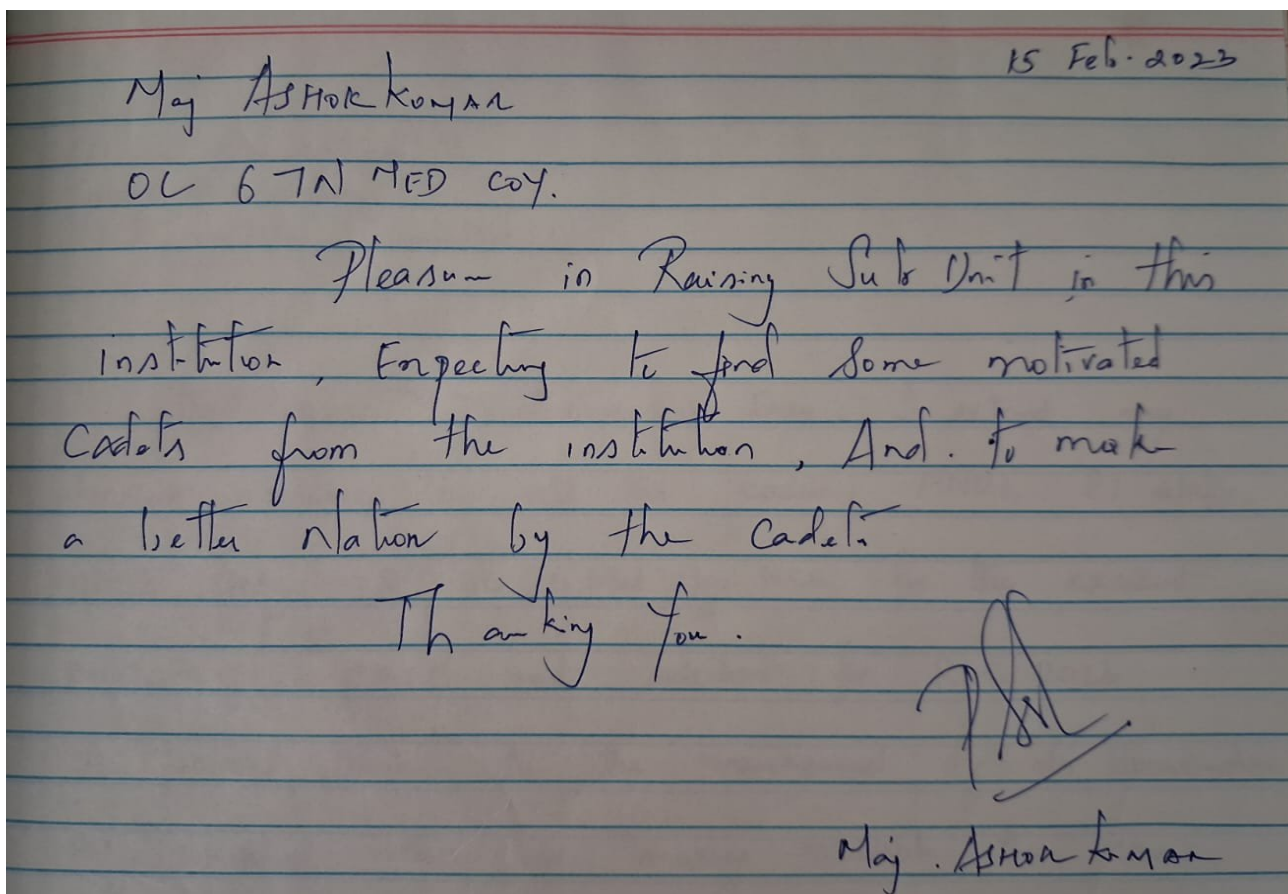 15 Feb. 2023
Maj ASHOK KUMAR
OC 6 TN MED COY.
Pleasure in Raising Sub Unit in this
institution, Expecting to find some motivated
Cadets from the institution, And. to make
a better Nation by the Cadets
Thanking You.
Maj. ASHOK KUMAR